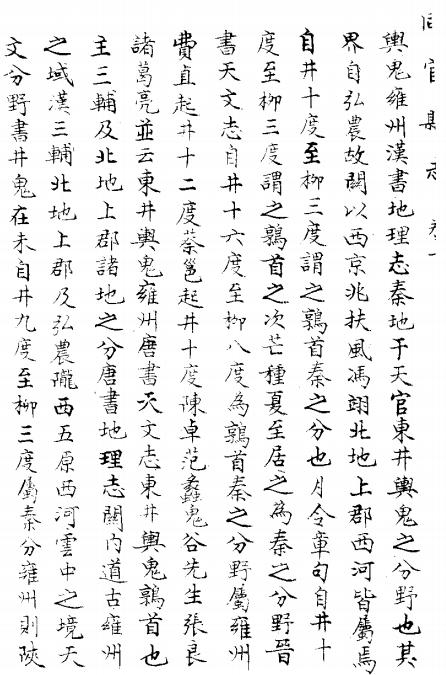 同官縣志 卷一
輿鬼雍州漢書地理志秦地于天官東井輿鬼之分野也其
界自弘農故關以西京兆扶風馮翊北地上郡西河皆屬焉
自井十度至柳三度謂之鶉首秦之分也月令章句自井十
度至柳三度謂之鶉首之次芒種夏至居之為秦之分野晉
書天文志自井十六度至柳八度為鶉首秦之分野屬雍州
費直起井十二度蔡邕起井十度陳卓范蠡鬼谷先生張良
諸葛亮並云東井輿鬼雍州唐書天文志東井輿鬼鶉首也
主三輔及北地上郡諸地之分唐書地理志關內道古雍州
之域漢三輔北地上郡及弘農隴西五原西河雲中之境天
文分野書井鬼在未自井九度至柳三度屬秦分雍州則陝